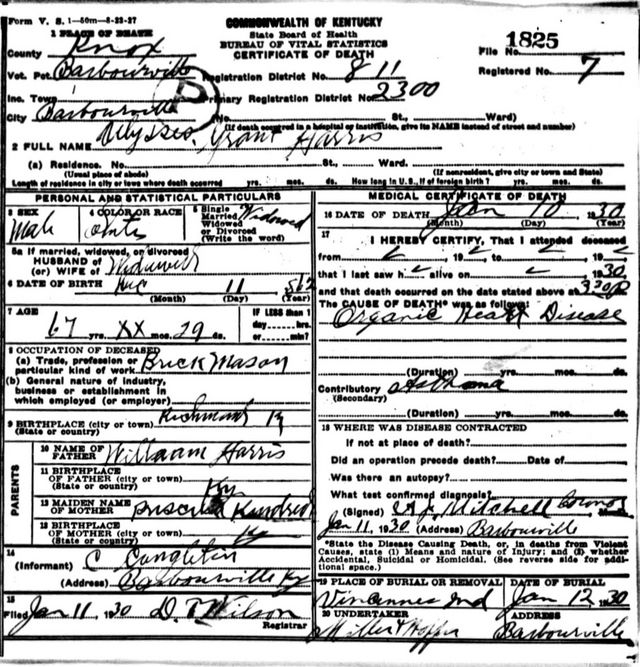 Form V. S. 1-50m-8-23-27
COMMONWEALTH OF KENTUCKY
State Board of Health
BUREAU OF VITAL STATISTICS
CERTIFICATE OF DEATH
1 PLACE OF DEATH
County Knox
File No. 1825
Vot. Pct. Barbourville
Registration District No. 811
Registered No. 7
Inc. Town
Primary Registration District No. 2300
City Barbourville
(No. St., Ward)
(If death occurred in a hospital or institution, give its NAME instead of street and number)
2 FULL NAME Ulysses Grant Harris
(a) Residence. No. St., Ward.
(Usual place of abode) (If nonresident, give city or town and State)
Length of residence in city or town where death occurred yrs. mos. ds. How long in U. S., if of foreign birth? yrs. mos. ds.
PERSONAL AND STATISTICAL PARTICULARS
3 SEX Male
4 COLOR OR RACE White
5 Single Married Widowed or Divorced (Write the word) Widowed
5a If married, widowed, or divorced
HUSBAND of
(or) WIFE of
6 DATE OF BIRTH 11
(Month) (Day) (Year)
7 AGE 67 yrs. XX mos. 29 ds.
IF LESS than 1
day hrs.
or min.
8 OCCUPATION OF DECEASED
(a) Trade, profession or
particular kind of work Brick Mason
(b) General nature of industry,
business or establishment in
which employed (or employer)
9 BIRTHPLACE (city or town) Richmond Ky
(State or country)
PARENTS
10 NAME OF
FATHER William Harris
11 BIRTHPLACE
OF FATHER (city or town) Ky
(State or country)
12 MAIDEN NAME
OF MOTHER
13 BIRTHPLACE
OF MOTHER (city or town) Ky
(State or country)
14
(Informant) C
(Address) Barbourville Ky
15
Filed Jan 11 1930 D. T. Wilson
Registrar
MEDICAL CERTIFICATE OF DEATH
16 DATE OF DEATH Jan 10 1930
(Month) (Day)
17
I HEREBY CERTIFY, That I attended deceased
from 19 to 19
that I last saw h alive on 1930
and that death occurred on the date stated above at
The CAUSE OF DEATH* was as follows:
Organic Heart Disease
(Duration) yrs. mos. ds.
Contributory Asthma
(Secondary)
(Duration) yrs. mos. ds.
18 WHERE WAS DISEASE CONTRACTED
If not at place of death?
Did an operation precede death? Date of
Was there an autopsy?
What test confirmed diagnosis?
(Signed) Mitchell
Jan 11, 1930 (Address) Barbourville
*State the Disease Causing Death, or, in deaths from Violent
Causes, state (1) Means and nature of Injury; and (2) whether
Accidental, Suicidal or Homicidal. (See reverse side for addi-
tional space.)
19 PLACE OF BURIAL OR REMOVAL
Vincennes Ind
DATE OF BURIAL
Jan 12 1930
20 UNDERTAKER
ADDRESS
Barbourville